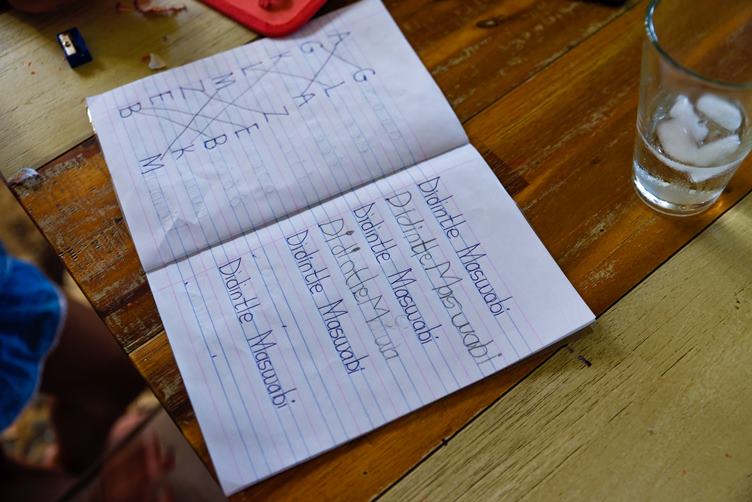 A G
G L
K A
L Z
M E
Z B
E K
B M
Didintle Maswabi
Didintle Maswabi
Didintle Maswabi
Didintle
Didintle Maswabi
Didintle Maswabi